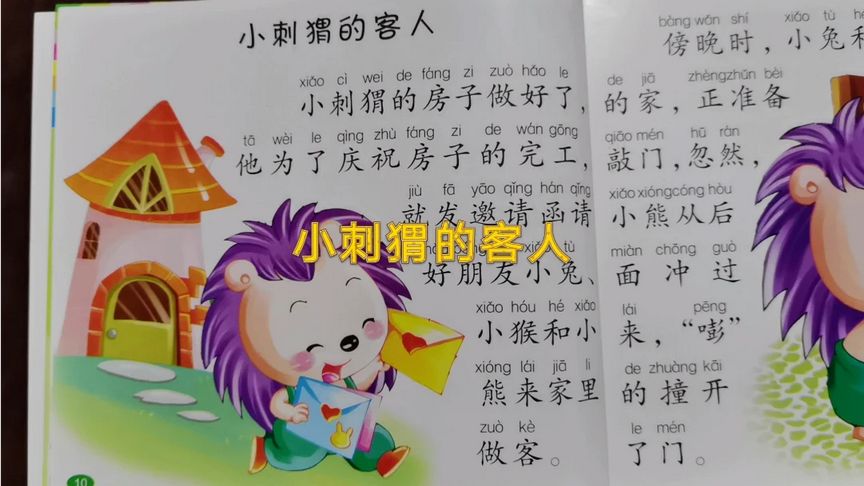 小刺猬的客人
xiǎo cì wei de fáng zi zuò hǎo le
小刺猬的房子做好了，
tā wèi le qìng zhù fáng zi de wán gōng
他为了庆祝房子的完工，
jiù fā yāo qǐng hán qǐng
就发邀请函请
好朋友小兔、
xiǎo hóu hé xiǎo
小猴和小
xióng lái jiā li
熊来家里
zuò kè
做客。
10
小刺猬的客人
bàng wǎn shí xiǎo tù hé
傍晚时，小兔和
de jiā zhèngzhǔn bèi
的家，正准备
qiāo mén hū rán
敲门，忽然，
xiǎo xióngcóng hòu
小熊从后
miàn chōng guò
面冲过
lái pēng
来，“嘭”
de zhuàng kāi
的撞开
le mén
了门。